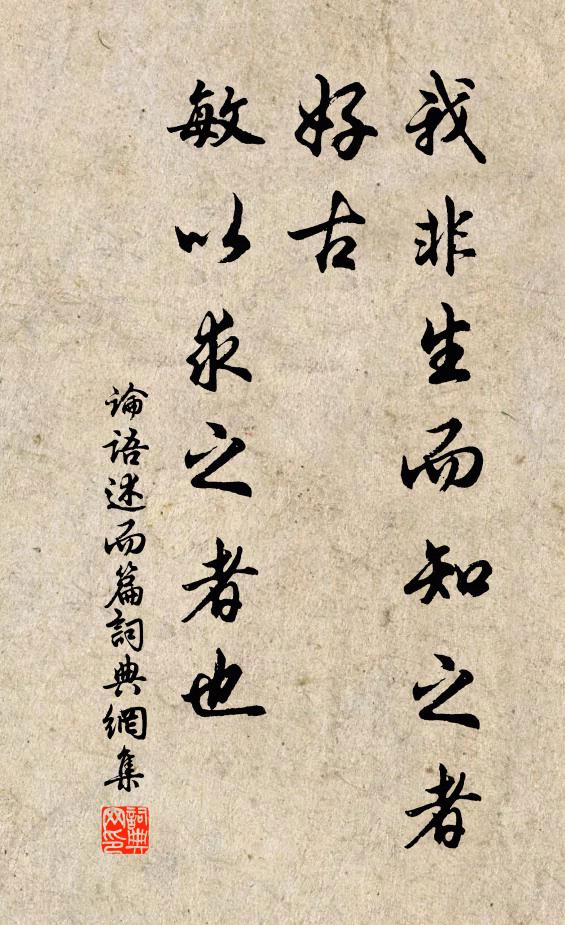 我非生而知之者
好古
敏以求之者也
论语述而篇詞典網集
詞典
网印